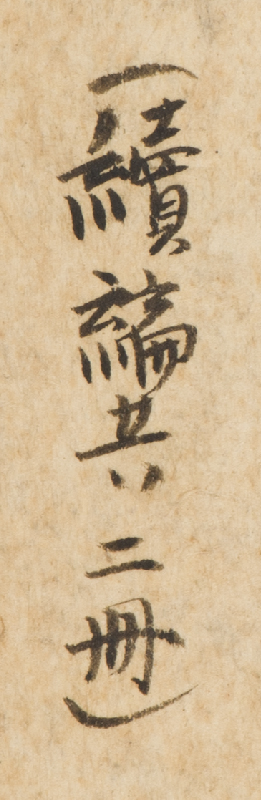 （續編共二冊）